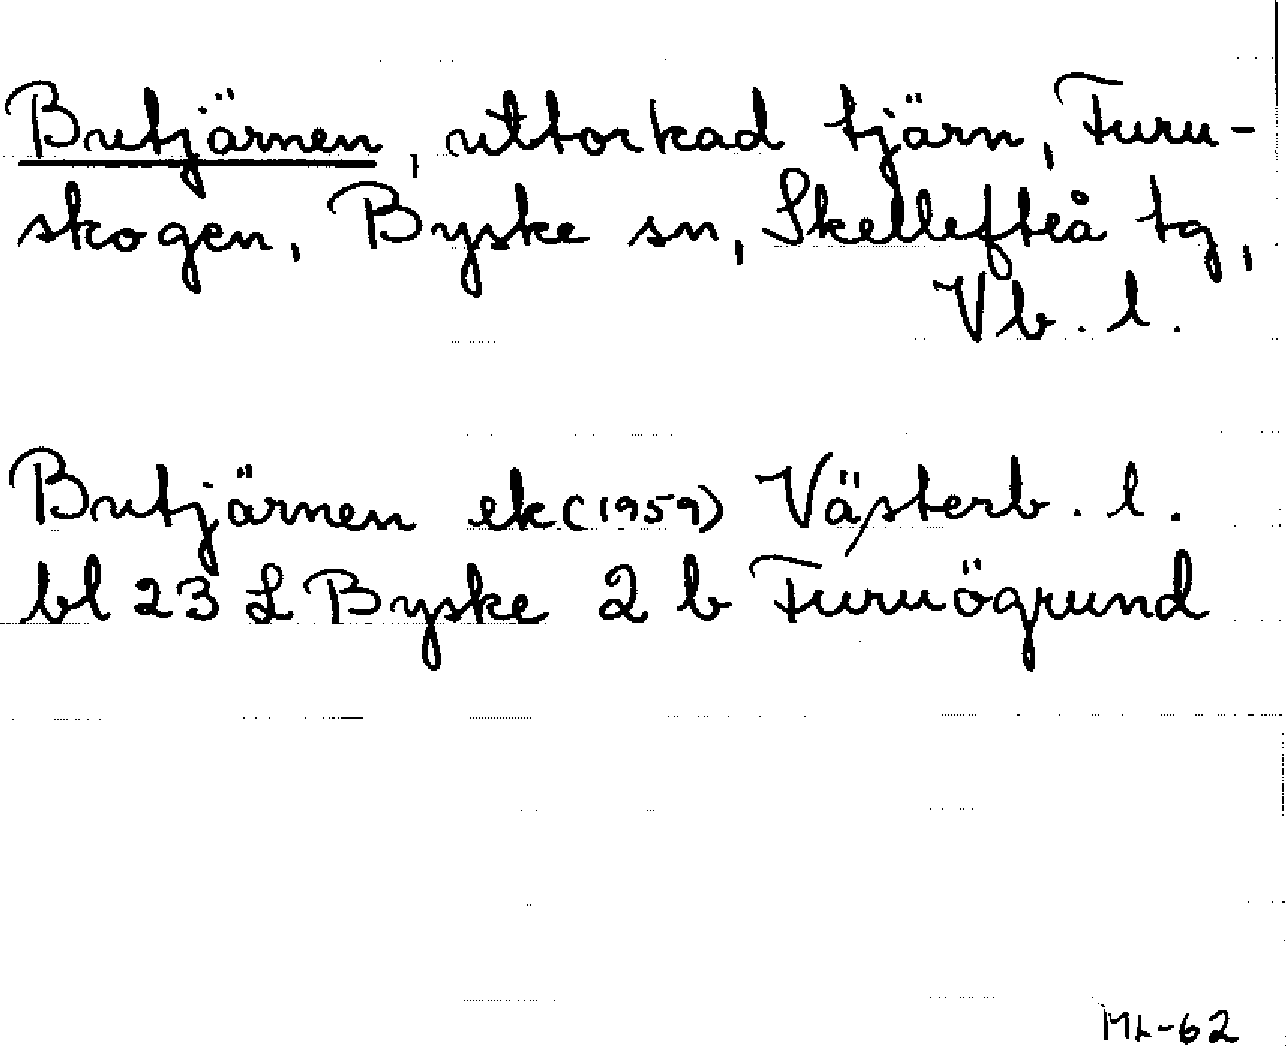 Butjärnen, uttorkad tjärn, Furu-
skogen, Byske sn, Skellefteå tg,
Vb. l.
Butjärnen ek (1959) Västerb. l.
bl 23 L Byske 2 b Furuögrund
ML-62